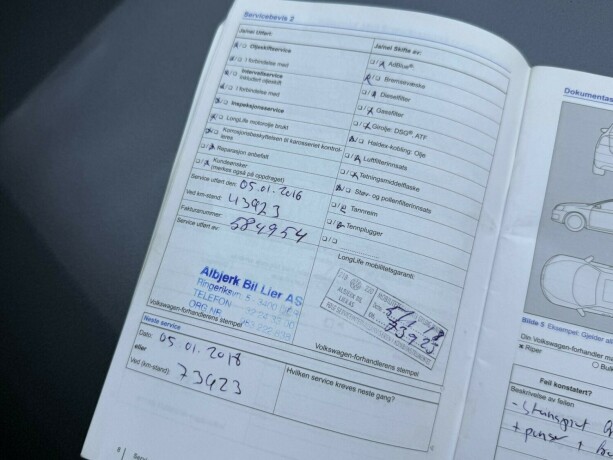 Servicebevis 2
Ja/nei Utført:
Oljeskiftservice
I forbindelse med
Intervallservice
Inkludert oljeskift
I forbindelse med
Inspeksjonsservice
LongLife motorolje brukt
Korrosjonsbeskyttelsen til karosseriet kontrolleres
Reparasjon anbefalt
Kundeønsker
(merkes også på oppdraget)
Service utført den: 05.01.2016
Ved km-stand: 43923
Fakturanummer: 584954
Service utført av:
Albjerk Bil Lier AS
TELEFON
ORG NR
Volkswagen-forhandlerens stempel
Neste service
Dato: 05.01.2018
eller
Ved (km-stand): 73923
Ja/nei Skiftes av:
AdBlue®
Bremsevæske
Dieselfilter
Gassfilter
Girolje: DSG® ATF
Haldex-kobling: Olje
Luftfilterinnsats
Tetningsmiddelflaske
Støv- og pollenfilterinnsats
Tannreim
Tennplugger
LongLife mobilitetsgaranti:
Volkswagen-forhandlerens stempel
Hvilken service kreves neste gang?
Dokumentas
Bilde 5 Eksempel: Gjelder
Din Volkswagen-forhandler
Riper
Feil konstatert?
Beskrivelse av feilen